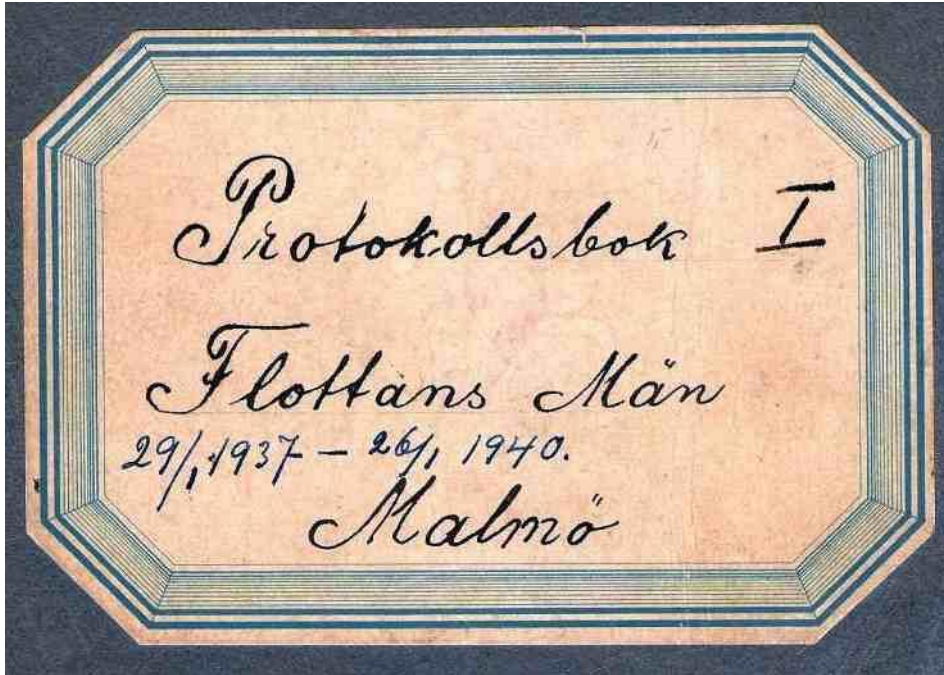 Protokollsbok I
Flottans Män
29/1 1937 – 26/1 1940.
Malmö